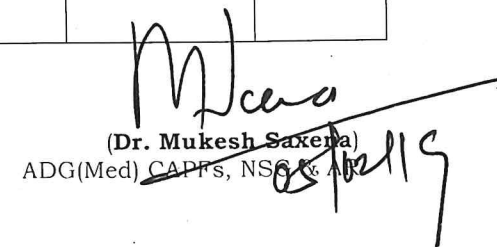 (Dr. Mukesh Saxena)
ADG(Med) CAPFs, NSG & AR
05/02/19